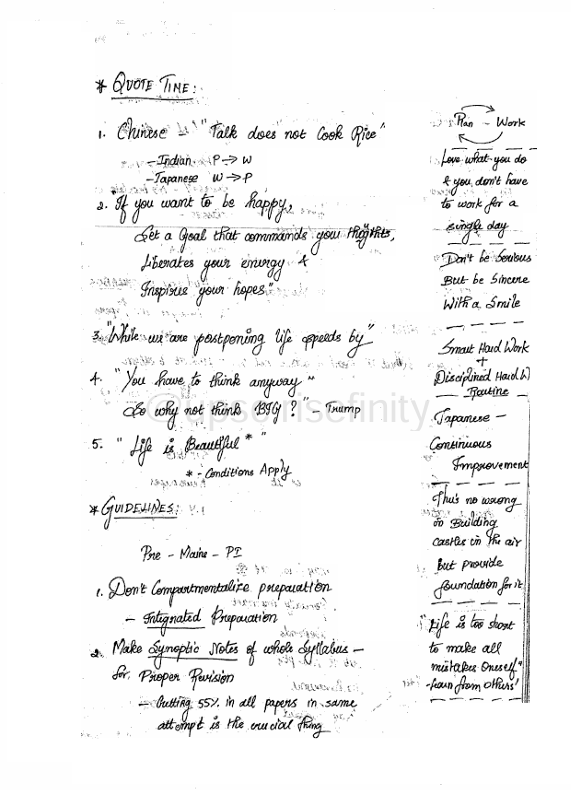 * QUOTE TIME:
1. Chinese - "Talk does not Cook Rice"
- Indian P → W
- Japanese W → P
2. "If you want to be happy,
Set a Goal that commands your thoghts,
Liberates your energy &
Inspires your hopes"
3. "While we are postponing life speeds by"
4. "You have to think anyway
So why not think BIG?" - Trump
5. "Life is Beautiful*"
* - Conditions Apply
* GUIDELINES:
Pre - Mains - PI
1. Don't Compartmentalize preparation
- Integrated Preparation
2. Make Synoptic Notes of whole Syllabus -
for Proper Revision
- Getting 55% in all papers in same
attempt is the crucial thing
Plan - Work
Love what you do
& you don't have
to work for a
single day
Don't be Serious
But be Sincere
With a Smile
Smart Hard Work
+
Disciplined Hard W
Routine
Japanese -
Continuous
Improvement
Thr's no wrong
in Building
castles in the air
but provide
foundation for it
"Life is too short
to make all
mistakes Oneself"
- learn from Others'